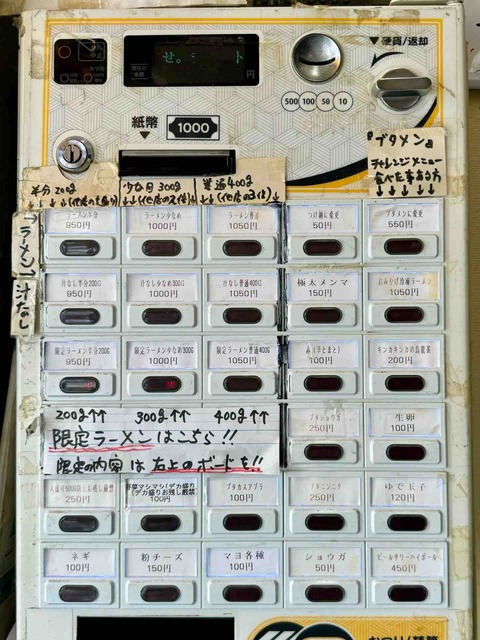 せ。
円
▼硬貨/返却
500 100 50 10
▼紙幣
1000
『ブタメン』
チャレンジメニュー
食べた事ある方
↓↓↓↓↓
半分200g
少な目300g
普通400g
ラーメン
汁なし
ラーメン半分
950円
ラーメン少なめ
1000円
ラーメン普通
1050円
つけ麺に変更
50円
ブタメンに変更
550円
汁なし半分200G
950円
汁なし少なめ300G
1000円
汁なし普通400G
1050円
極太メンマ
150円
おみやげ冷凍ラーメン
1050円
限定ラーメン半分200G
950円
限定ラーメン少なめ300G
1000円
限定ラーメン普通400G
1050円
100円
キンカキンカの烏龍茶
200円
200g↑↑ 300g↑↑ 400g↑↑
限定ラーメンはこちら!!
限定の内容は右上のボードを!!
ブタショウガ
250円
生卵
100円
250円
野菜マシマシ(デカ盛り)
(デカ盛りお残し厳禁)
100円
ブタカスアブラ
100円
ブタニンニク
250円
ゆで玉子
120円
ネギ
100円
粉チーズ
150円
マヨ各種
100円
ショウガ
50円
ビールサワーハイボール
450円